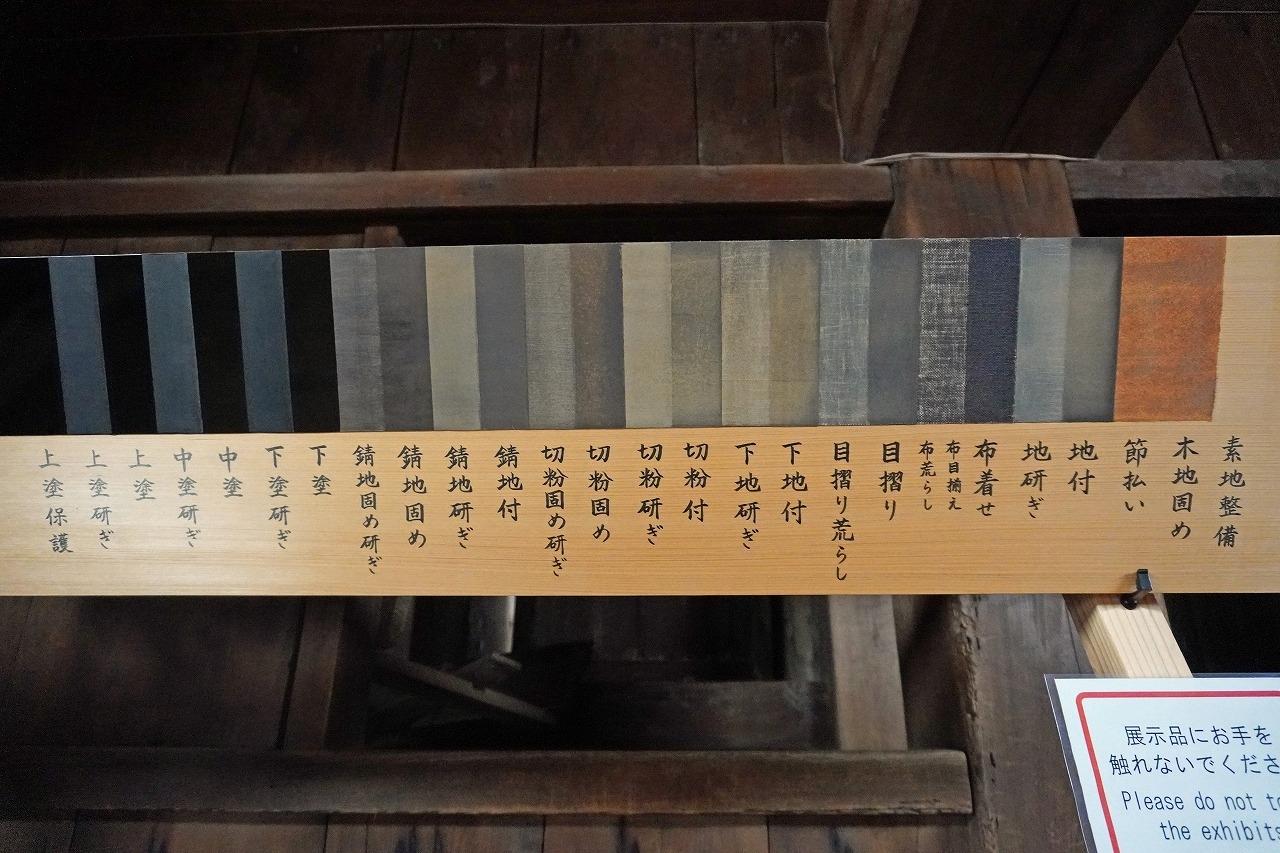 素地整備
木地固め
節払い
地付
地研ぎ
布着せ
布目揃え
布荒らし
目摺り
目摺り荒らし
下地付
下地研ぎ
切粉付
切粉研ぎ
切粉固め
切粉固め研ぎ
錆地付
錆地研ぎ
錆地固め
錆地固め研ぎ
下塗
下塗研ぎ
中塗
中塗研ぎ
上塗
上塗研ぎ
上塗保護
展示品にお手を
触れないでくださ
Please do not to
the exhibits